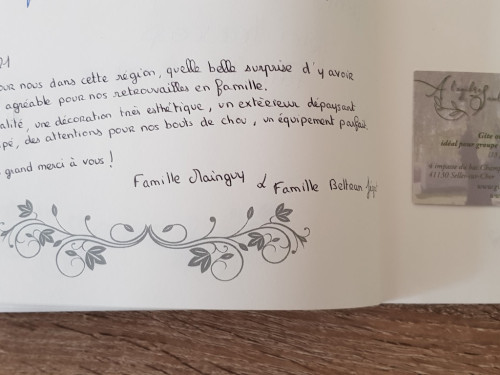 our nous dans cette région, quelle belle surprise d'y avoir
agréable pour nos retrouvailles en famille.
alité, une décoration très esthétique, un extérieur dépaysant
pé, des attentions pour nos bouts de chou, un équipement parfait.
grand merci à vous !
Famille Mainguy & Famille Beltean
Gîte
idéal pour groupe
4 impasse du bas Champ
41130 Selles-sur-Cher